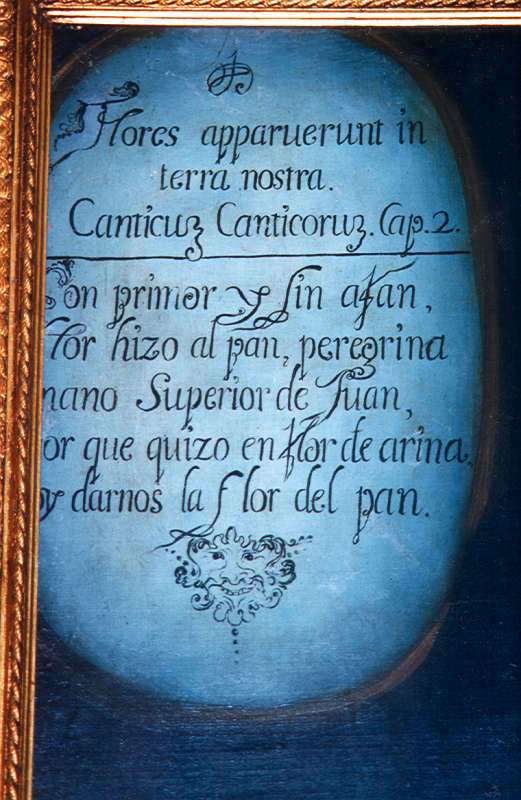 Flores apparuerunt in
terra nostra.
Canticuz Canticoruz. Cap. 2.
Con primor y sin afan,
flor hizo al pan, peregrina
mano Superior de Juan,
por que quizo en flor de arina,
oy darnos la flor del pan.